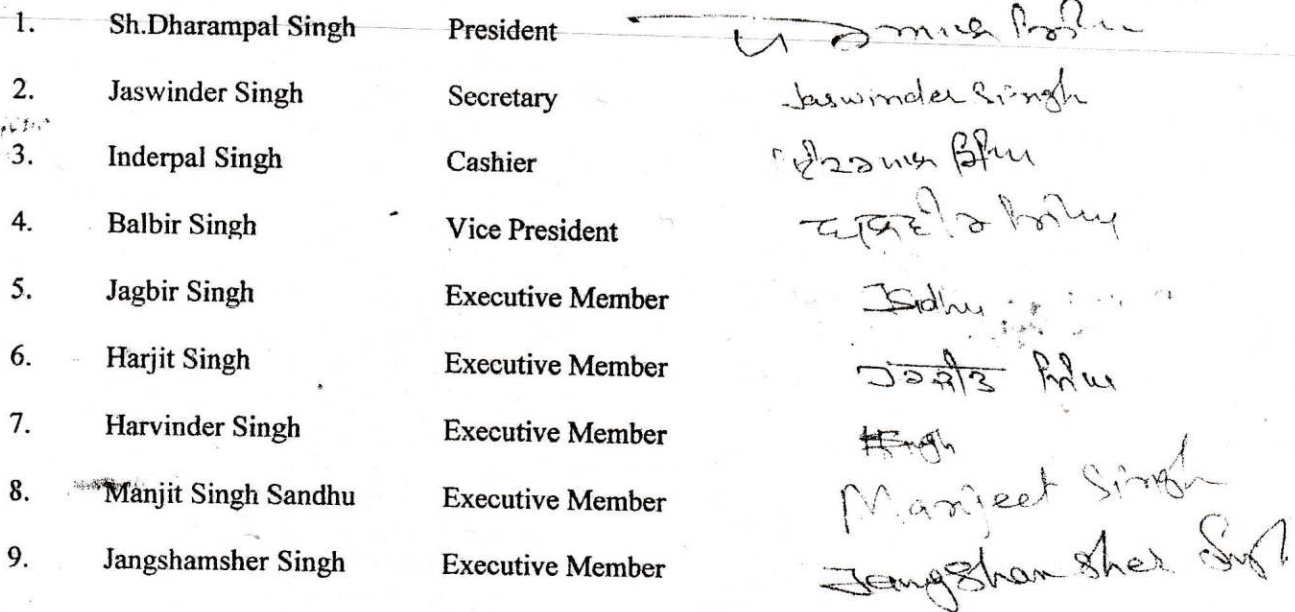 1. Sh.Dharampal Singh President ਧਰਮਪਾਲ ਸਿੰਘ
2. Jaswinder Singh Secretary Jaswinder Singh
3. Inderpal Singh Cashier ਸਿੰਘ
4. Balbir Singh Vice President ਬਲਬੀਰ ਸਿੰਘ
5. Jagbir Singh Executive Member JSidhu
6. Harjit Singh Executive Member ਹਰਜੀਤ ਸਿੰਘ
7. Harvinder Singh Executive Member HSingh
8. Manjit Singh Sandhu Executive Member Manjeet Singh
9. Jangshamsher Singh Executive Member Jangshamsher Singh